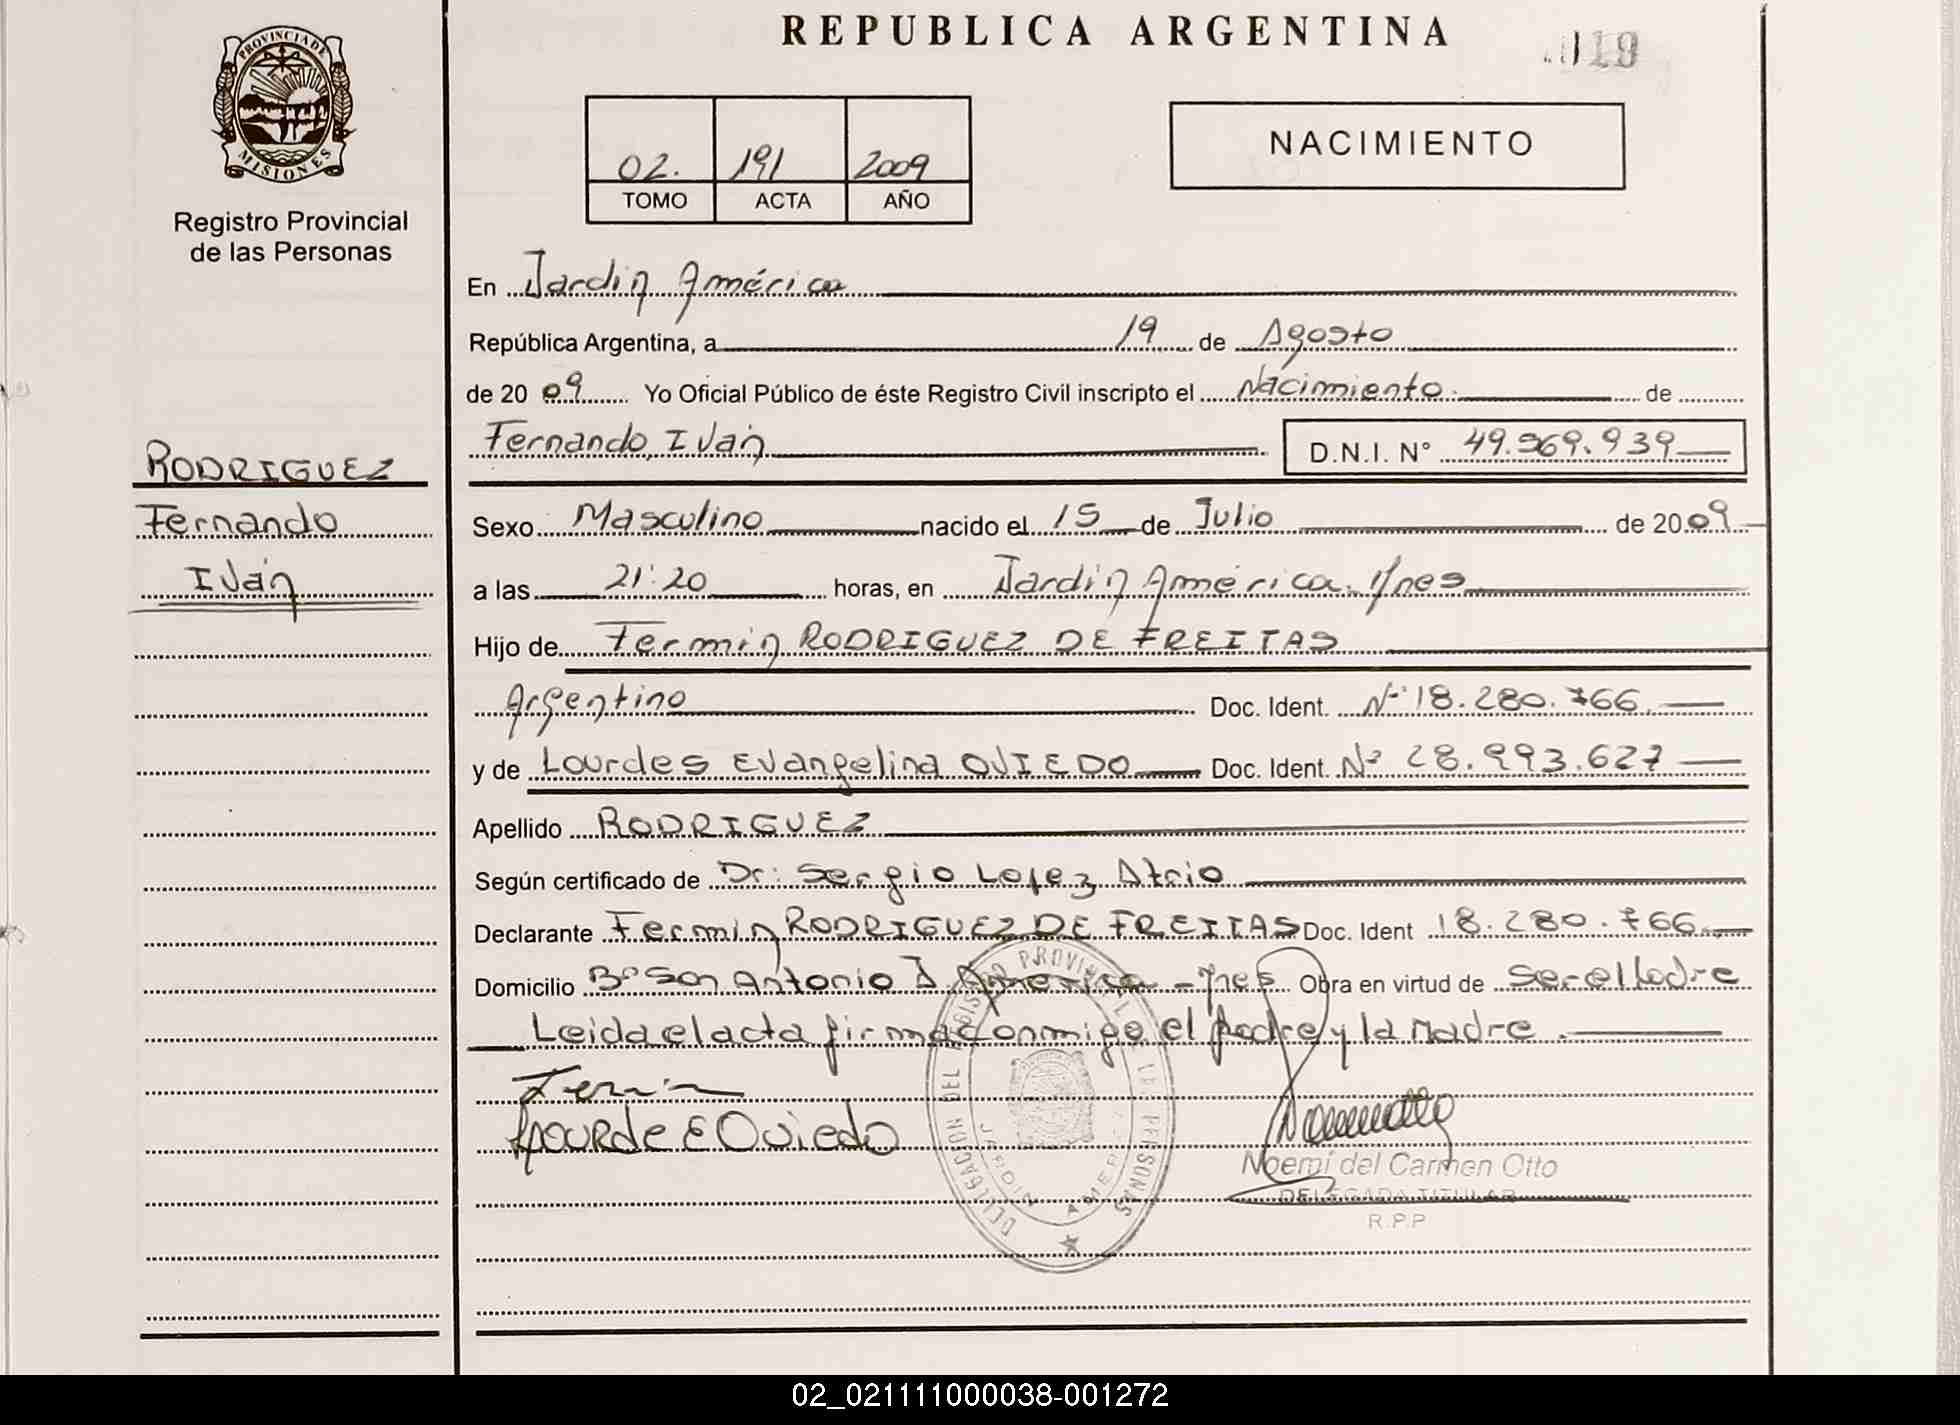 REPUBLICA ARGENTINA
119
PROVINCIA DE
MISIONES
Registro Provincial
de las Personas
NACIMIENTO
02. 191 2009
TOMO ACTA AÑO
En Jardin América
República Argentina, a 19 de Agosto
de 2009 Yo Oficial Público de éste Registro Civil inscripto el Nacimiento de
Fernando, Iván D.N.I. N° 49.969.939
RODRIGUEZ
Fernando
Iván
Sexo Masculino nacido el 15 de Julio de 2009
a las 21:20 horas, en Jardin América. Mnes
Hijo de Fermin RODRIGUEZ DE FREITAS
Argentino Doc. Ident. N° 18.280.766.
y de Lourdes Evangelina OVIEDO Doc. Ident. N° 28.993.627
Apellido RODRIGUEZ
Según certificado de Dr: Sergio Lopez Atrio
Declarante Fermin RODRIGUEZ DE FREITAS Doc. Ident 18.280.766.
Domicilio B° San Antonio J. America - Mnes Obra en virtud de ser el Padre
Leida el acta firma conmigo el padre y la Madre.
Fermin
Lourde E Oviedo
DELEGACION DEL REGISTRO PROVINCIAL DE LAS PERSONAS
JARDIN AMERICA
Noemí del Carmen Otto
DELEGADA TITULAR
R.P.P
02_021111000038-001272